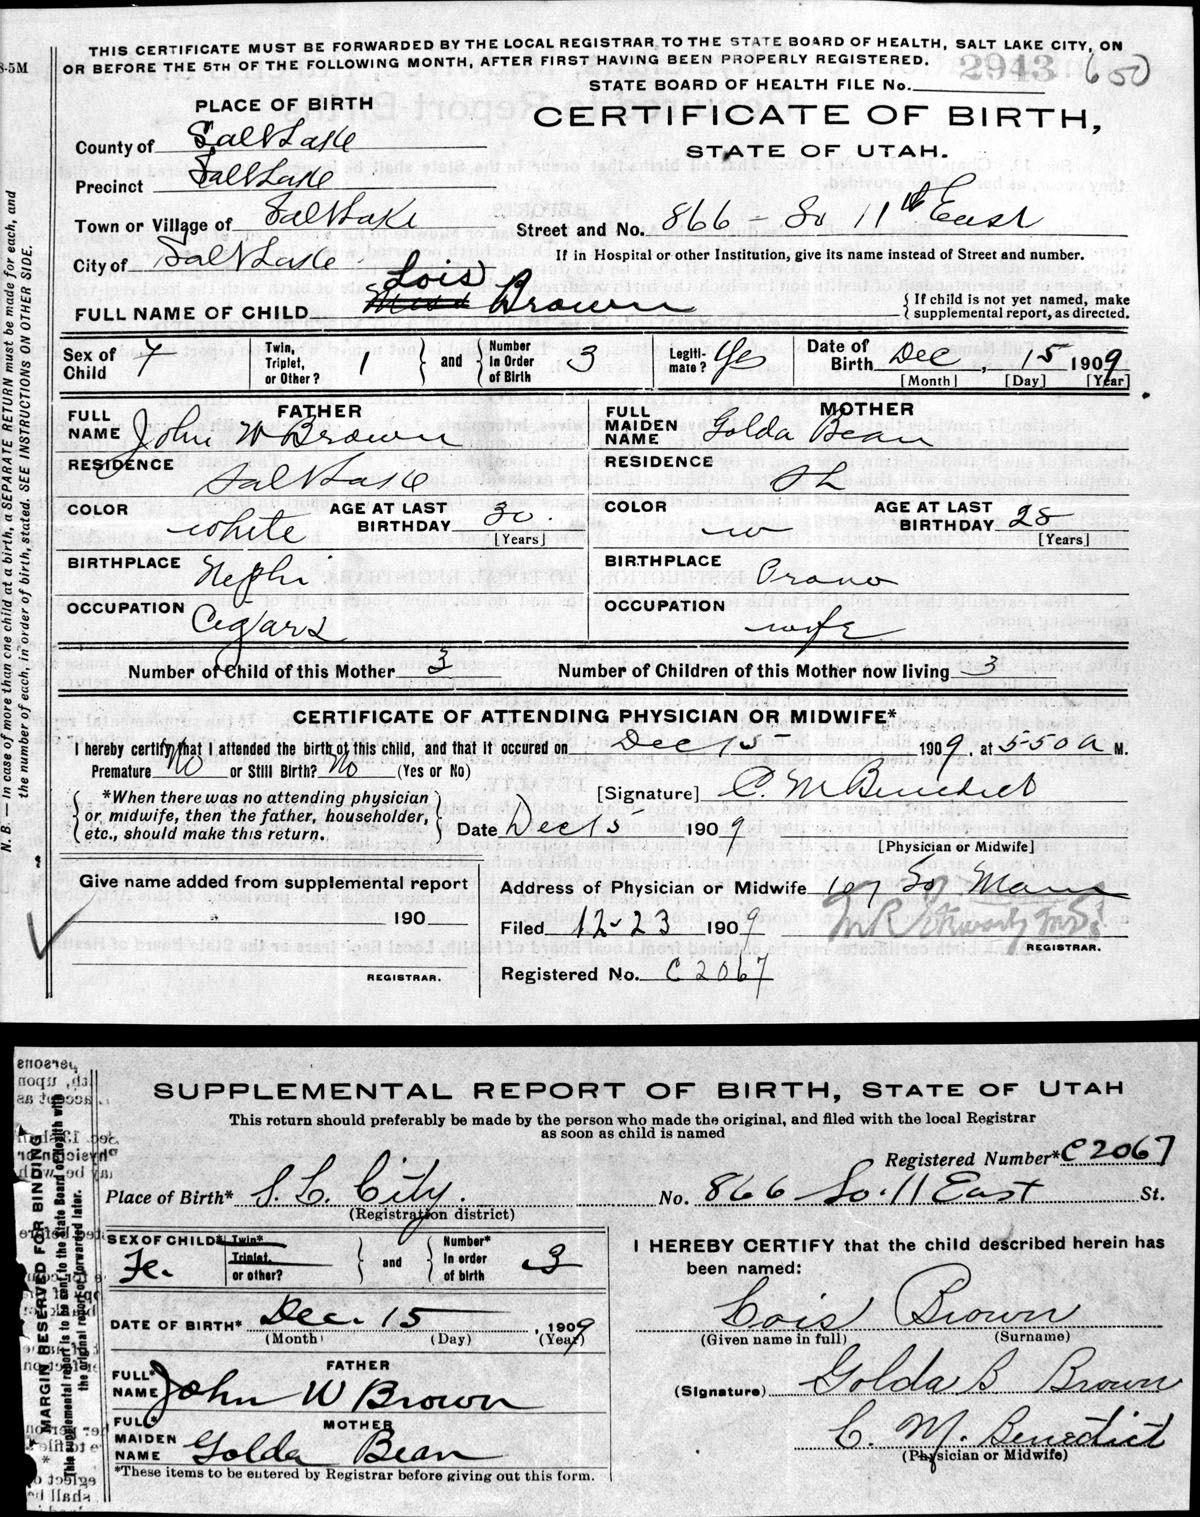 THIS CERTIFICATE MUST BE FORWARDED BY THE LOCAL REGISTRAR TO THE STATE BOARD OF HEALTH, SALT LAKE CITY, ON
OR BEFORE THE 5TH OF THE FOLLOWING MONTH, AFTER FIRST HAVING BEEN PROPERLY REGISTERED. 2943 650
8-5M
STATE BOARD OF HEALTH FILE No.
PLACE OF BIRTH
CERTIFICATE OF BIRTH,
STATE OF UTAH.
County of Salt Lake
Precinct Salt Lake
Town or Village of Salt Lake
Street and No. 866 - So 11th East
City of Salt Lake
If in Hospital or other Institution, give its name instead of Street and number.
Lois
FULL NAME OF CHILD Brown
If child is not yet named, make
supplemental report, as directed.
Sex of Child F
Twin, Triplet, or Other? 1 and Number In Order of Birth 3
Legiti-mate? Yes
Date of Birth Dec, 15 1909
[Month] [Day] [Year]
FATHER
FULL NAME John W Brown
MOTHER
FULL MAIDEN NAME Golda Bean
RESIDENCE Salt Lake
RESIDENCE SL
COLOR white AGE AT LAST BIRTHDAY 30 [Years]
COLOR w AGE AT LAST BIRTHDAY 28 [Years]
BIRTHPLACE Nephi
BIRTHPLACE Provo
OCCUPATION Cigars
OCCUPATION wife
Number of Child of this Mother 3 Number of Children of this Mother now living 3
CERTIFICATE OF ATTENDING PHYSICIAN OR MIDWIFE*
I hereby certify that I attended the birth of this child, and that it occured on Dec 15 1909, at 550 a M.
Premature No or Still Birth? No (Yes or No)
*When there was no attending physician
or midwife, then the father, householder,
etc., should make this return.
[Signature] C. M Benedict
Date Dec 15 1909
[Physician or Midwife]
Give name added from supplemental report
190
REGISTRAR.
Address of Physician or Midwife 107 So Main
Filed 12-23 1909
REGISTRAR.
Registered No. C 2067
N. B. — In case of more than one child at a birth, a SEPARATE RETURN must be made for each, and
the number of each, in order of birth, stated. SEE INSTRUCTIONS ON OTHER SIDE.
SUPPLEMENTAL REPORT OF BIRTH, STATE OF UTAH
This return should preferably be made by the person who made the original, and filed with the local Registrar
as soon as child is named
Registered Number* C2067
Place of Birth* S. L. City. No. 866 So. 11 East St.
(Registration district)
SEX OF CHILD* Fe.
Twin* Triplet, or other? and Number* In order of birth 3
DATE OF BIRTH* Dec. 15, 1909
(Month) (Day) (Year)
FATHER
FULL* NAME John W Brown
MOTHER
FULL* MAIDEN NAME Golda Bean
*These items to be entered by Registrar before giving out this form.
I HEREBY CERTIFY that the child described herein has
been named:
Lois Brown
(Given name in full) (Surname)
(Signature) Golda B Brown
C. M. Benedict
(Physician or Midwife)
* MARGIN RESERVED FOR BINDING
This supplemental report is to be sent to the State Board of Health with
the original report or forwarded later.